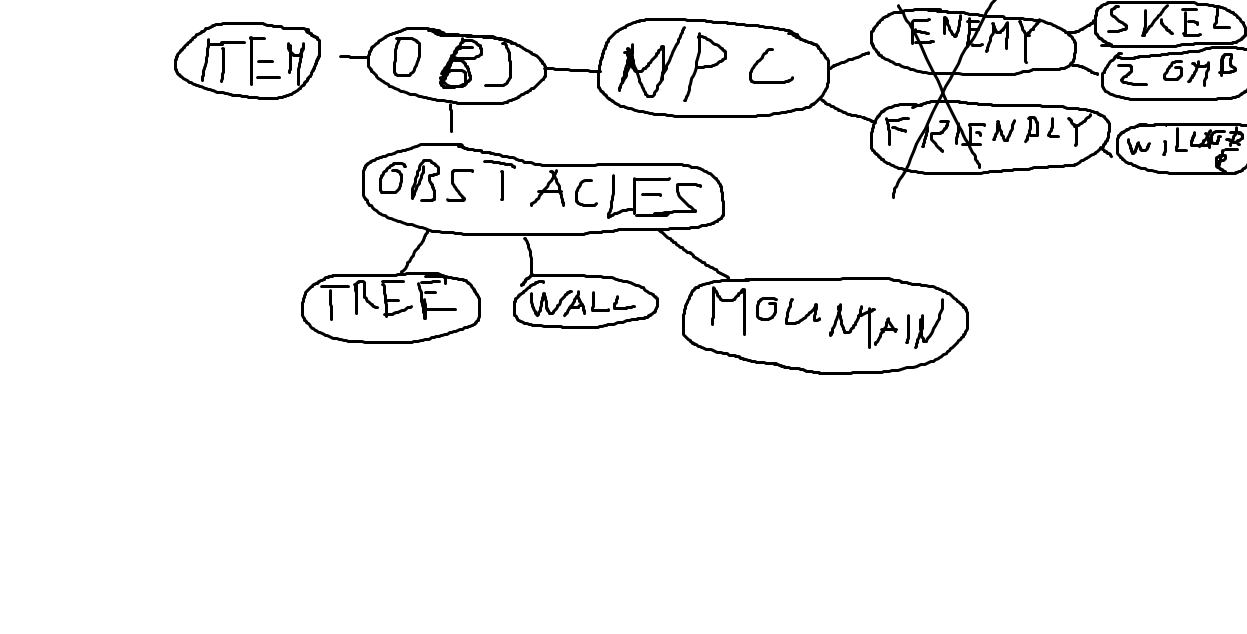 ITEM
OBJ
NPC
ENEMY
SKEL
ZOMB
FRIENDLY
OBSTACLES
TREE
WALL
MOUNTAIN